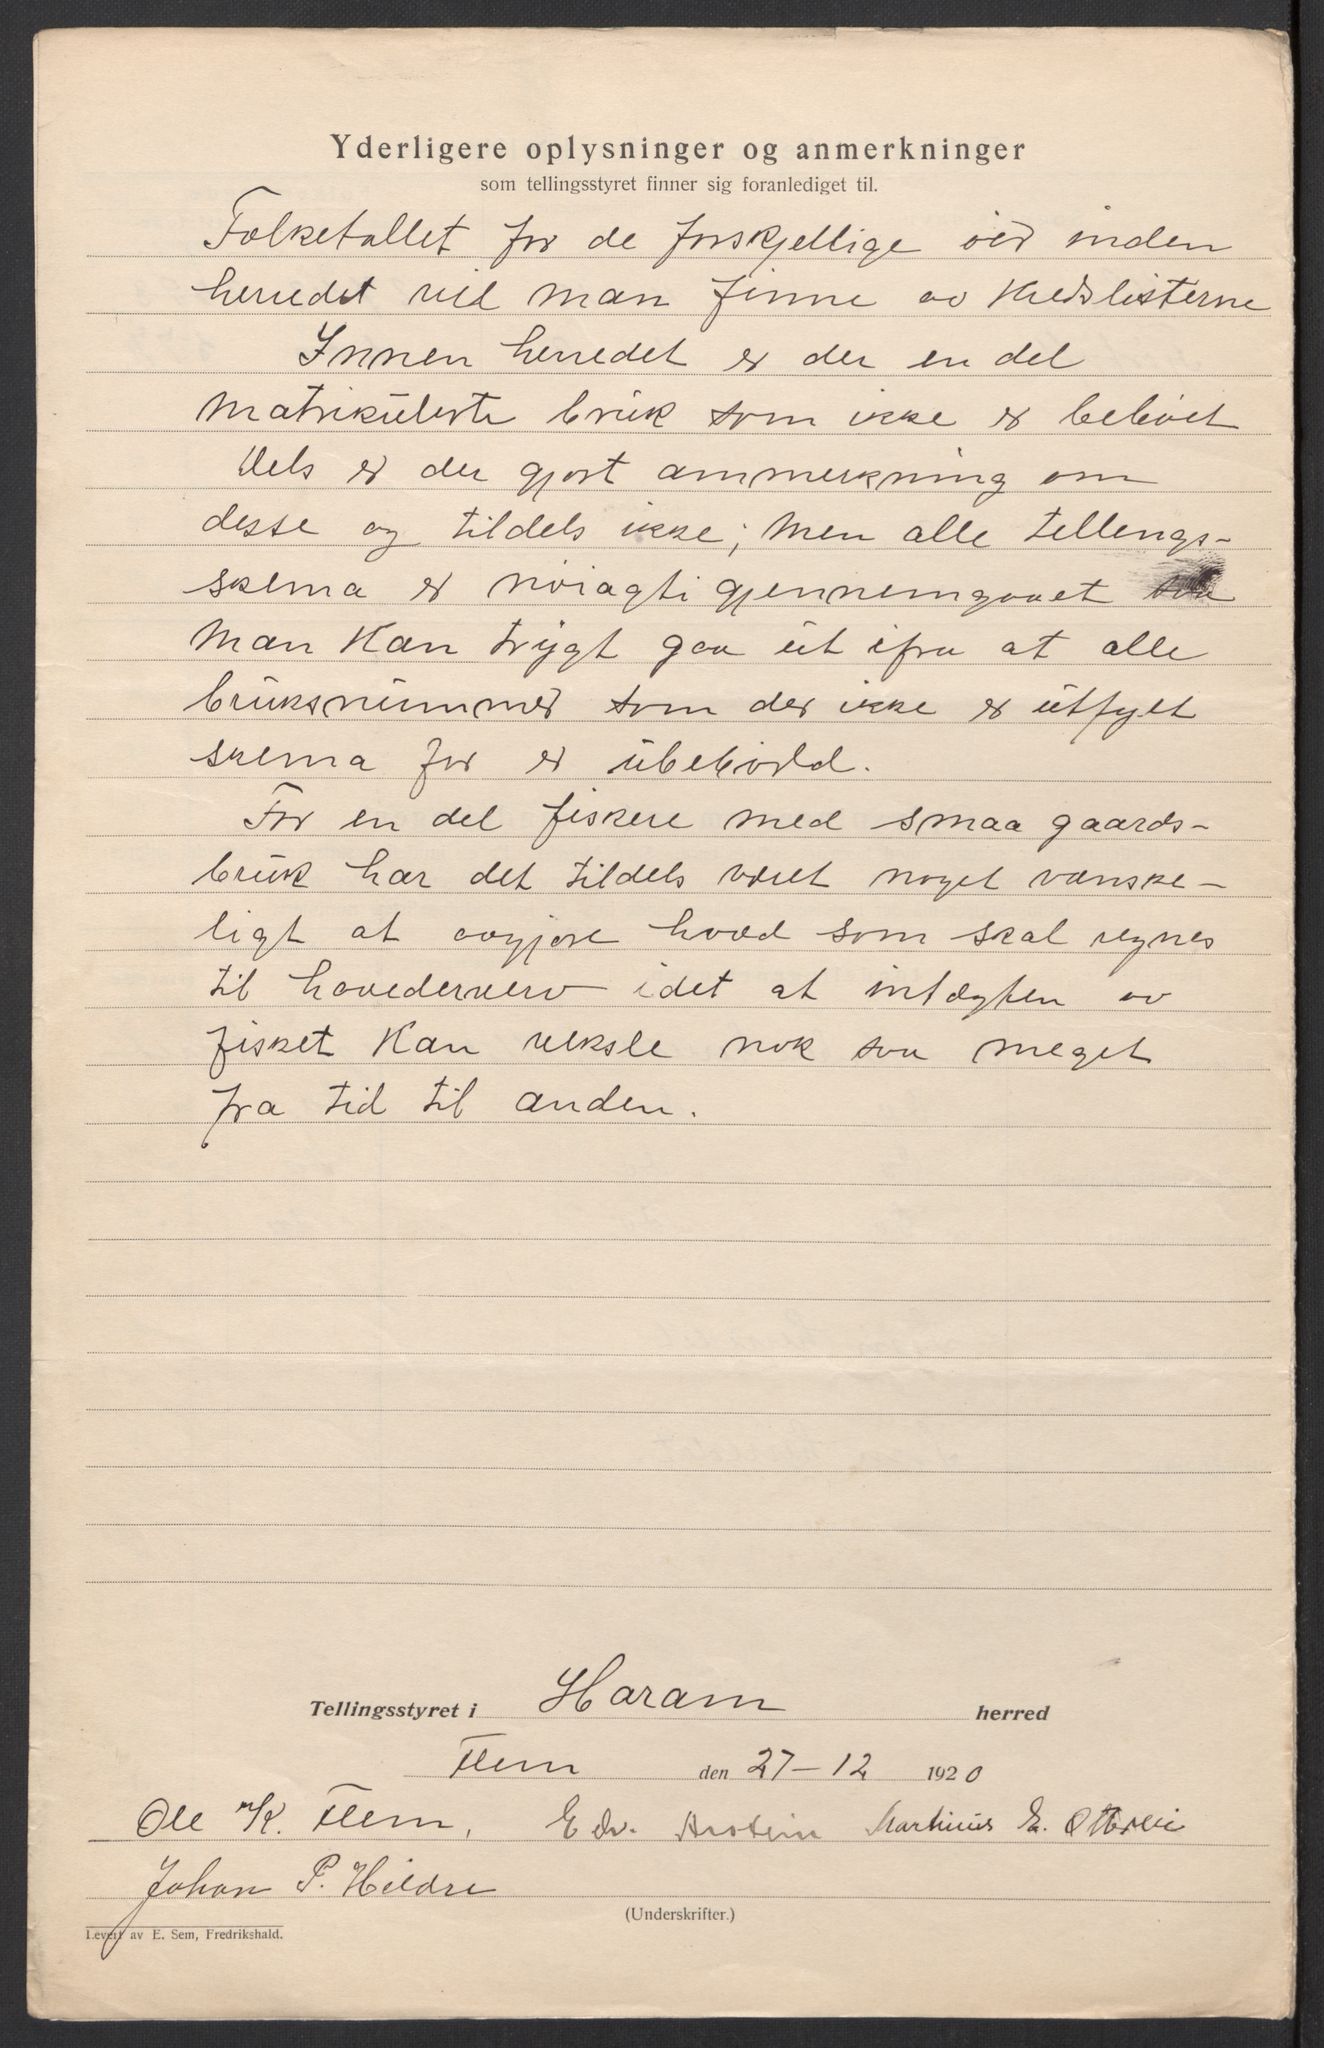 Yderligere oplysninger og anmerkninger
som tellingsstyret finner sig foranlediget til.
Folketallet for de forskjellige øer inden
herredet vil man finne av Kredslisterne
Innen herredet er der en del
matrikulerte bruk som ikke er beboet
Dels er der gjort anmerkning om
desse og tildels ikke; men alle tellings-
skema er nøiagti gjennemgaaet saa
man kan trygt gaa ut ifra at alle
bruksnummer som der ikke er utfylt
skema for er ubebodd.
For en del fiskere med smaa gaards-
bruk har det tildels været noget vanske-
ligt at avgjøre hvad som skal regnes
til hovederverv idet at indtægten av
fisket kan veksle nok saa meget
fra tid til anden.
Tellingsstyret i Haram herred
Flem den 27-12 1920
Ole K. Flem, Edv. Martinus E. Otterlei
Johan P. Hildre
(Underskrifter.)
Levert av E. Sem, Fredrikshald.